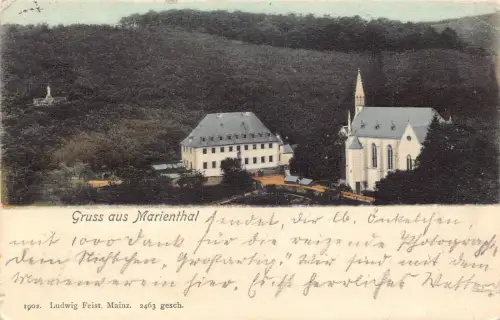 Gruss aus Marienthal sendet, dir lb. Onkelchen,
mit 1000 Dank für die reizende Photograph,
dem Nichtchen, Großartig! Wir sind mit dem
Marienverein hier, Echt herrliches Wetter
1902. Ludwig Feist, Mainz. 2463 gesch.